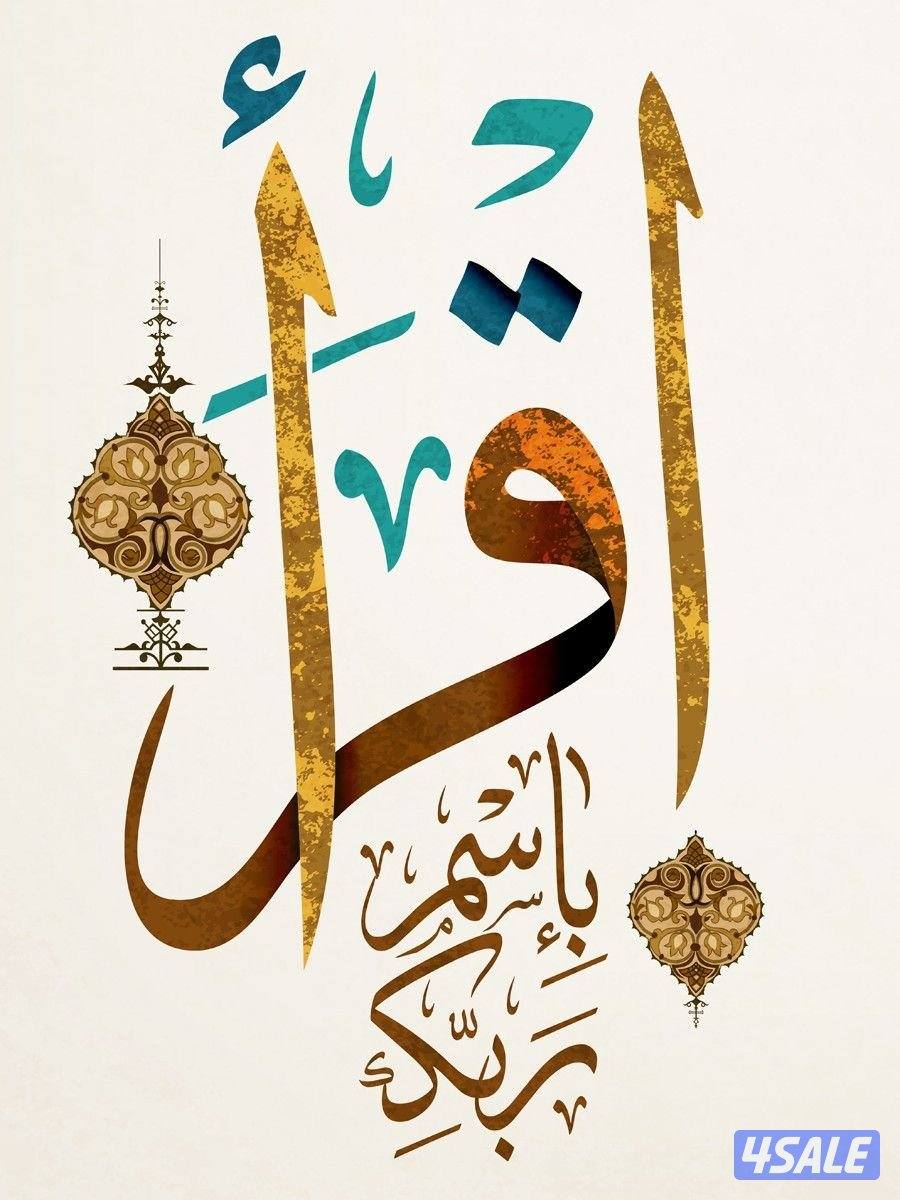 اقْرَأْ
بِإسْمِ
رَبِّكِ
4SALE